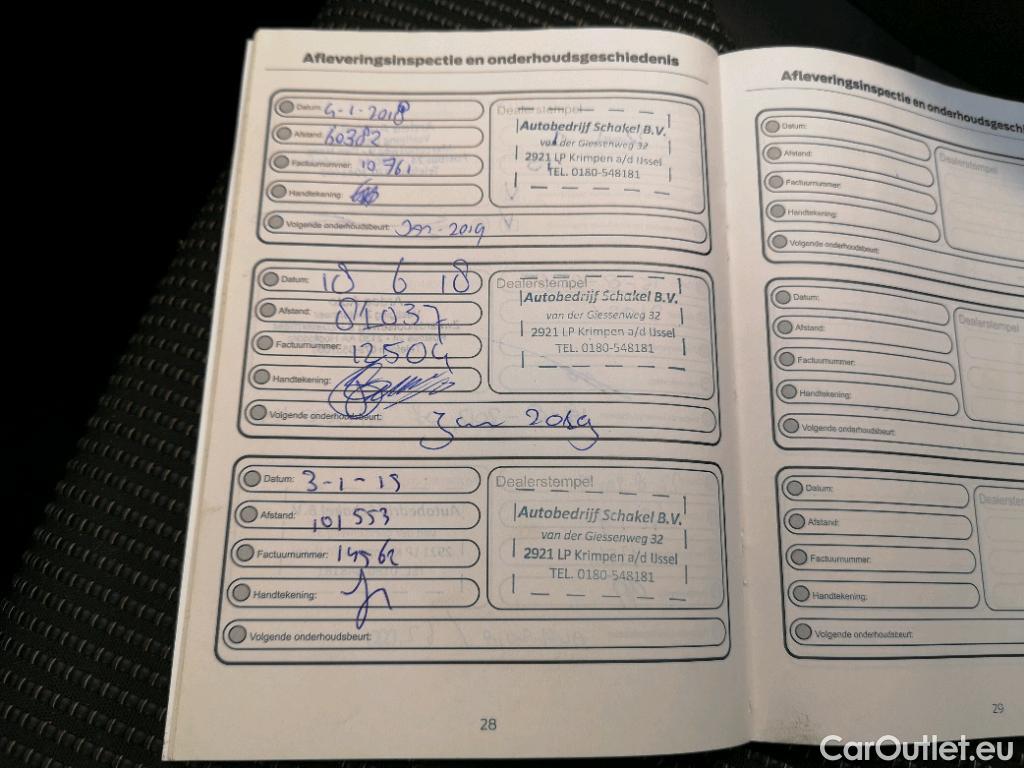 Afleveringsinspectie en onderhoudsgeschiedenis
Datum: 4-1-2018
Afstand: 60382
Factuurnummer: 10761
Handtekening:
Volgende onderhoudsbeurt: Jan-2019
Dealerstempel
Autobedrijf Schakel B.V.
van der Giessenweg 32
2921 LP Krimpen a/d IJssel
TEL. 0180-548181
Datum: 18 6 18
Afstand: 81037
Factuurnummer: 12504
Handtekening:
Volgende onderhoudsbeurt: Jan 2019
Dealerstempel
Autobedrijf Schakel B.V.
van der Giessenweg 32
2921 LP Krimpen a/d IJssel
TEL. 0180-548181
Datum: 3-1-19
Afstand: 101553
Factuurnummer: 14562
Handtekening:
Volgende onderhoudsbeurt:
Dealerstempel
Autobedrijf Schakel B.V.
van der Giessenweg 32
2921 LP Krimpen a/d IJssel
TEL. 0180-548181
28
Afleveringsinspectie en onderhoudsgeschi
Datum:
Afstand:
Factuurnummer:
Handtekening:
Volgende onderhoudsbeurt:
Dealerstempel
Datum:
Afstand:
Factuurnummer:
Handtekening:
Volgende onderhoudsbeurt:
Dealerstempel
Datum:
Afstand:
Factuurnummer:
Handtekening:
Volgende onderhoudsbeurt:
Dealerstem
29
CarOutlet.eu